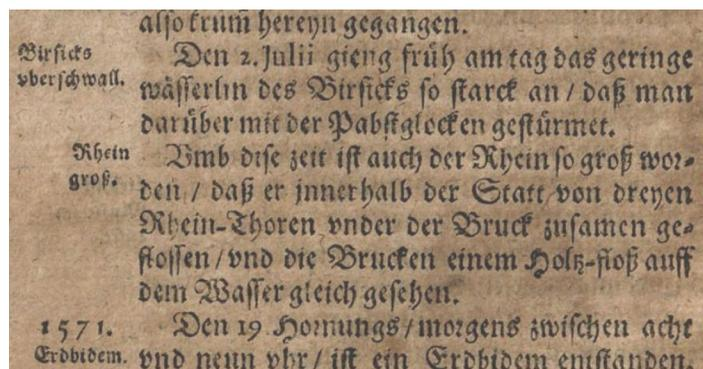 also krum̃ hereyn gegangen.
Birsicks
vberschwall.
Den 2. Julii gieng früh am tag das geringe
wässerlin des Birsicks so starck an / daß man
darüber mit der Pabstglocken gestürmet.
Rhein
groß.
Vmb dise zeit ist auch der Rhein so groß wor-
den / daß er jnnerhalb der Statt / von dreyen
Rhein-Thoren vnder der Bruck zusamen ge-
flossen / vnd die Brucken einem Holtz-floß auff
dem Wasser gleich gesehen.
1571.
Erdbidem.
Den 19 Hornungs / morgens zwischen acht
vnd neun vhr / ist ein Erdbidem entstanden.